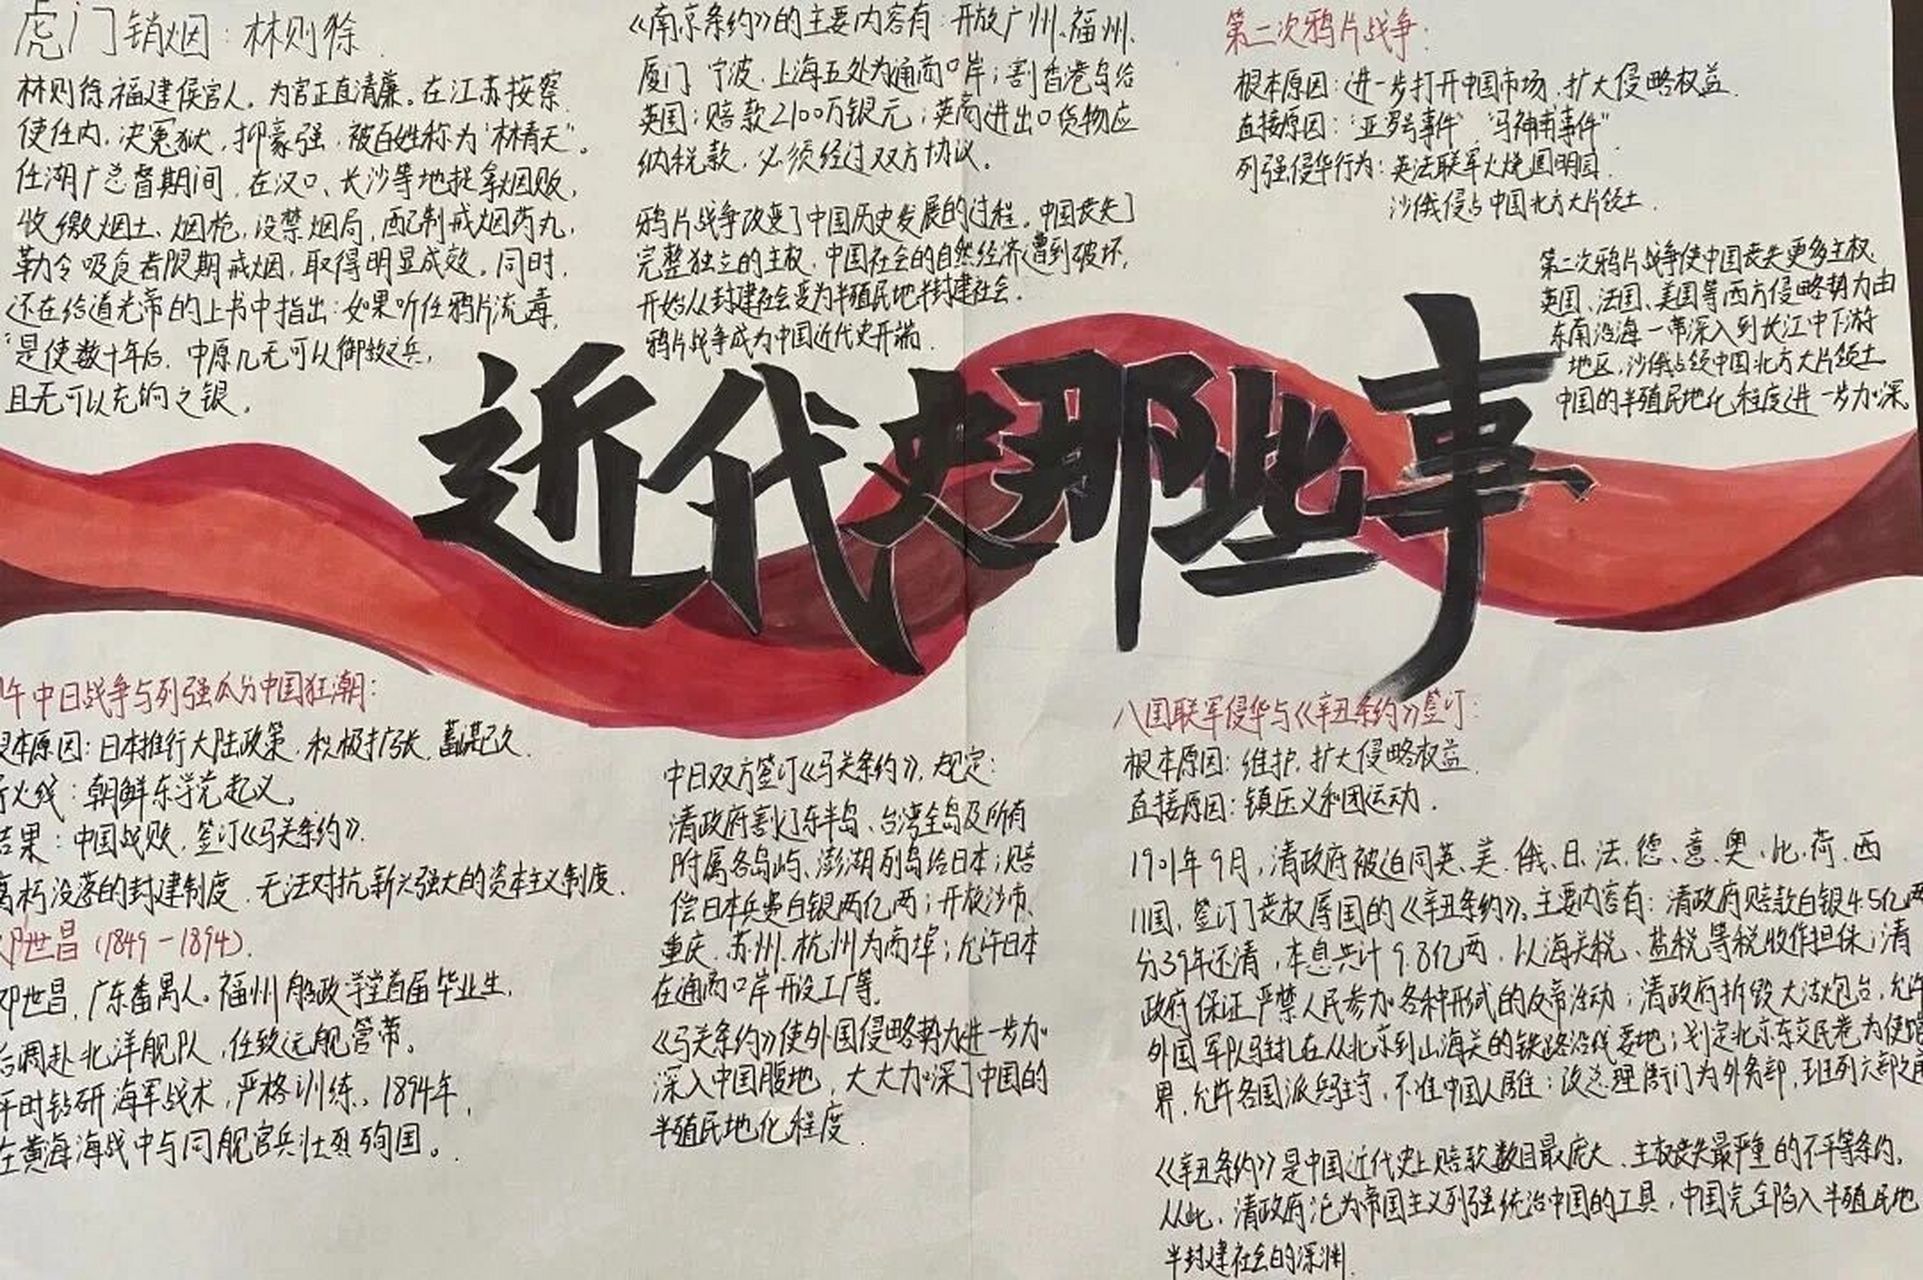 虎门销烟：林则徐
林则徐福建侯官人。为官正直清廉。在江苏按察
使任内，决冤狱，抑豪强，被百姓称为“林青天”。
任湖广总督期间，在汉口、长沙等地捉拿烟贩，
收缴烟土、烟枪，没禁烟局，配制戒烟药丸，
勒令吸食者限期戒烟，取得明显成效。同时，
还在给道光帝的上书中指出：如果听任鸦片流毒，
“是使数十年后，中原几无可以御敌之兵，
且无可以充饷之银。
《南京条约》的主要内容有：开放广州、福州、
厦门 宁波、上海五处为通商口岸；割香港岛给
英国；赔款2100万银元；英商进出口货物应
纳税款，必须经过双方协议。
鸦片战争改变了中国历史发展的过程。中国丧失了
完整独立的主权，中国社会的自然经济遭到破坏，
开始从封建社会变为半殖民地半封建社会。
鸦片战争成为中国近代史开端
第二次鸦片战争：
根本原因：进一步打开中国市场，扩大侵略权益
直接原因：“亚罗号事件”“马神甫事件”
列强侵华行为：英法联军火烧圆明园
沙俄侵占中国北方大片领土
第二次鸦片战争使中国丧失更多主权，
英国、法国、美国等西方侵略势力由
东南沿海一带深入到长江中下游
地区，沙俄占领中国北方大片领土
中国的半殖民地化程度进一步加深
近代史那些事
午中日战争与列强瓜分中国狂潮：
本原因：日本推行大陆政策，积极扩张，蓄谋已久
火线：朝鲜东学党起义。
结果：中国战败，签订《马关条约》
腐朽没落的封建制度，无法对抗新兴强大的资本主义制度
邓世昌（1849－1894）
邓世昌，广东番禺人。福州船政学堂首届毕业生，
后调赴北洋舰队，任致远舰管带。
平时钻研海军战术，严格训练。1894年，
在黄海海战中与同舰官兵壮烈殉国。
中日双方签订《马关条约》，规定：
清政府割辽东半岛、台湾全岛及所有
附属各岛屿、澎湖列岛给日本；赔
偿日本兵费白银两亿两；开放沙市、
重庆、苏州、杭州为商埠；允许日本
在通商口岸开设工厂等。
《马关条约》使外国侵略势力进一步加
深入中国腹地，大大加深了中国的
半殖民地化程度
八国联军侵华与《辛丑条约》签订：
根本原因：维护，扩大侵略权益
直接原因：镇压义和团运动
1901年9月，清政府被迫同英、美、俄、日、法、德、意、奥、比、荷、西
11国，签订了丧权辱国的《辛丑条约》。主要内容有：清政府赔款白银4.5亿两
分39年还清，本息共计9.8亿两，以海关税、盐税等税收作担保；清
政府保证严禁人民参加各种形式的反帝活动；清政府拆毁大沽炮台，允许
外国军队驻扎在从北京到山海关的铁路沿线要地；划定北京东交民巷为使馆
界，允许各国派兵驻守，不准中国人居住；改总理衙门为外务部，班列六部之前
《辛丑条约》是中国近代史上赔款数目最庞大、主权丧失最严重的不平等条约。
从此，清政府沦为帝国主义列强统治中国的工具，中国完全陷入半殖民地
半封建社会的深渊